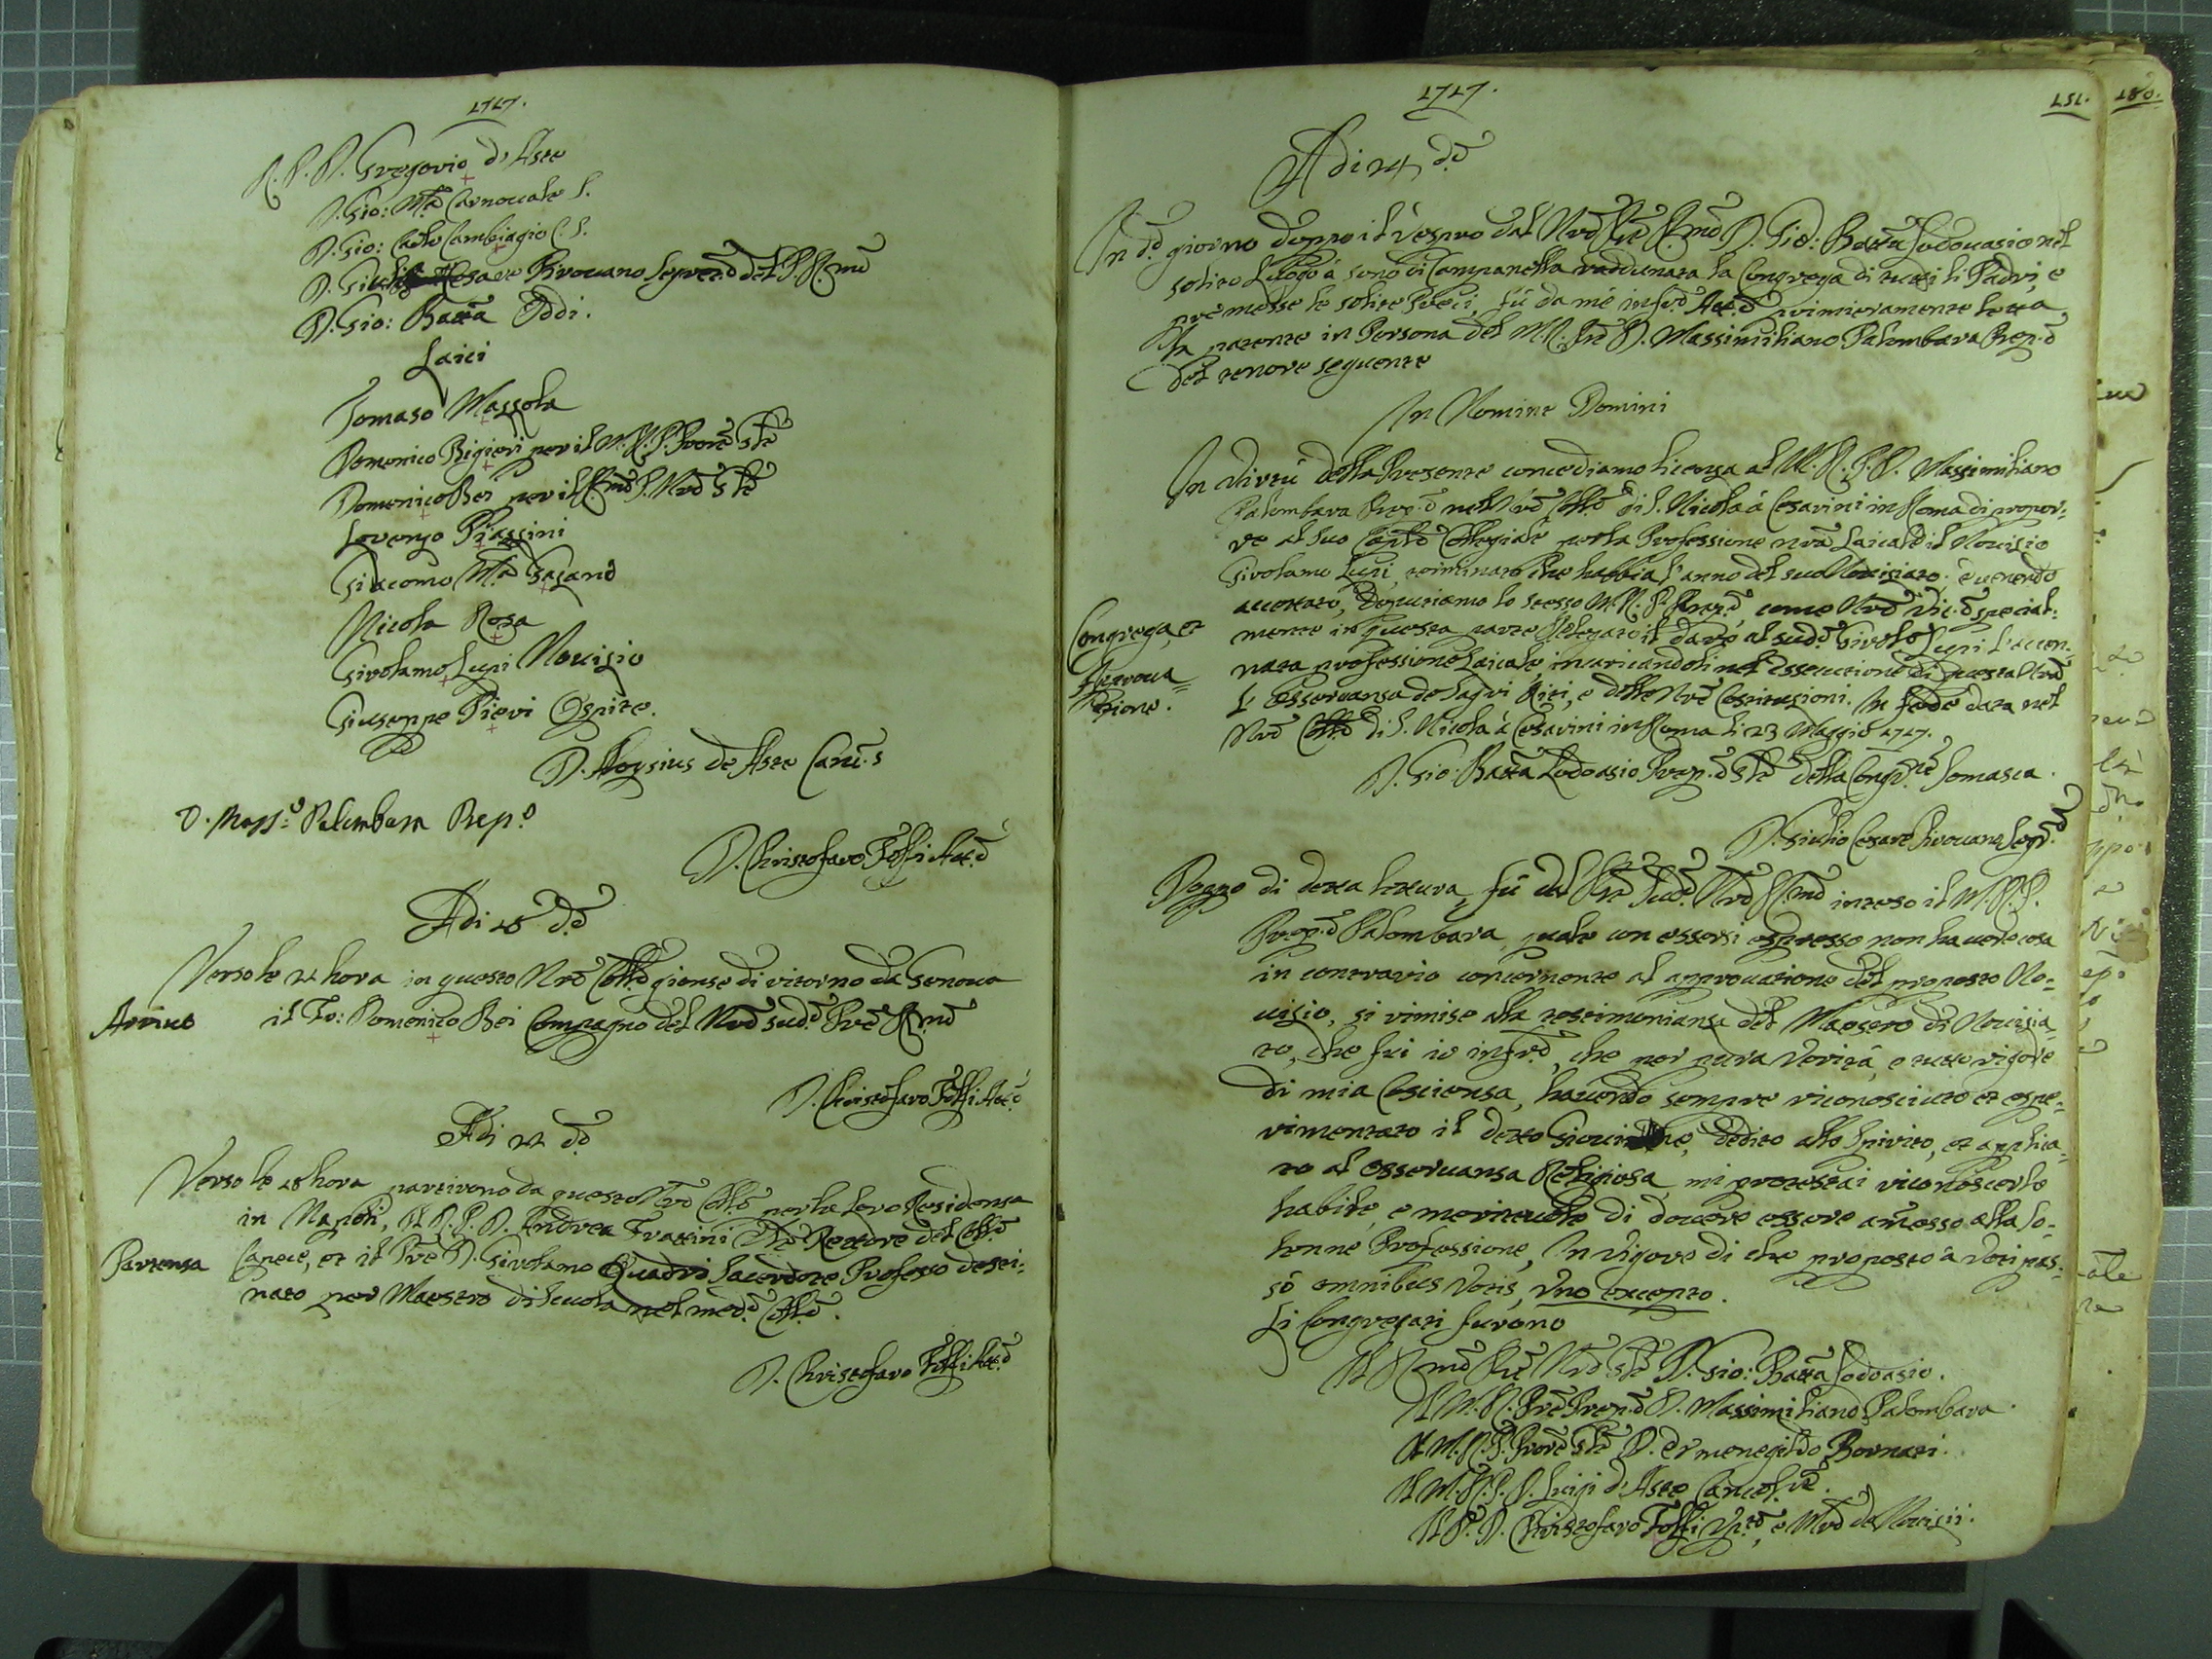 1717.
R. P. D. Gregorio d'Aste
D. Gio: Mã Carnouale S.
D. Gio: Carlo Cambiagio C. S.
D. Giulio Cesare Pirouano Segret.º del P. Rmõ
D. Gio: Batta Oddi.
Laici
Tomaso Massola
Domenico Rigieri per il M. R. P. Prorẽ Gle
Domenico Bei per il Rmõ P. Nrõ Gle
Lorenzo Piassini
Giacomo Mã
Nicola Rosa
Girolamo Lupi Nouisio
Giuseppe Pievi Ospite.
D. Aloysius de Aste Canc.s
D. Mass.º Palombara Prep.º
D. Christofaro Att.º
Adi 18 dº
Verso le 21 hora in questo Nrõ Collº gionse di ritorno da Genoua
Arriuo
il Fr: Domenico Bei Compagno del Nrõ sudº Prẽ Rmõ
D. Christofaro Att.º
Adi 22 dº
Verso le 18 hora partirono da questo Nrõ Collº per la loro Residensa
in Napoli, Il R. P. D. Andrea Frattini Rettore del Collº
Partensa
Capece, et il Prẽ D. Girolamo Quadri Sacerdote Professo desti-
nato per Maestro di scuola nel medº Collº.
D. Christofaro Att.º
1717.
151.
180.
Adi 24 dº
In dº giorno doppo il Vespro dal Nrõ Prẽ Rmõ D. Gio: Batta Lodouasio nel
solito Luogo à sono di Campanella raddunata la Congrega di tutti li Padri, e
premesse le solite Preci, fù da mè infº Att.º primieramente letta
la patente in Persona del M. R. Prẽ D. Massimiliano Palombara Prep.º
del tenore seguente
In Nomine Domini
In Virtù della Presente concediamo licenza al M. R. P. D. Massimiliano
Palombara Prep.º nel Nrõ Collº di S. Nicola à Cesarini in Roma di propor-
re al suo Caplõ Collegiale per la Professione nrã Laicale il Nouisio
Girolamo Lupi, terminato che habbia l'anno del suo Nouisiato. e venendo
accettato, Deputiamo lo stesso M. R. P. Prep.º come Nrõ Vic.º special-
Congrega, et
Approua-
zione.
mente in questa parte Delegato il dare al sudº Girolº Lupi l'accen-
nata professione Laicale, incaricandoli nel essecutione di questa Nrã
l'osseruansa de sagri Riti, e delle Nrẽ Costitusioni. In fede data nel
Nrõ Collº di S. Nicola à Cesarini in Roma li 23 Maggio 1717.
D. Gio: Batta Lodoasio Prep.º Gle della Congrne Somasca.
D. Giulio Cesare Pirouano Segr.º
Doppo di detta lettura, fù dal Prẽ sudº Nrõ Rmõ inteso il M. R. P.
Prep.º Palombara, quale con essersi espresso non hauere cosa
in contrario concernente al approuatione del proposto No-
uisio, si rimise alla testimoniansa del Maestro di Nouisia-
to, che fui io infrº, che per pura Verità, e tutto rigore
di mia Coscienza, hauendo sempre riconosciuto et espe-
rimentato il detto Giouine, dedito allo spirito, et applica-
to al osseruansa Religiosa, mi protestai riconoscerlo
habile, e meriteuole di douere essere amesso alla so-
lenne Professione, In Vigore di che proposto à Voti pas-
sò omnibus Votis, vno excepto.
Li Congregati furono
Il Rmõ Prẽ Nrõ Gle D. Gio: Batta Lodoasio.
Il M. R. Prẽ Prep.º D. Massimiliano Palombara.
Il M. R. P. Prorẽ Gle D. Ermenegildo Bornati.
Il M. R. P. D. Luigi d'Aste Cancel.re.
Il P. D. Christofaro e Mrõ de Nouisii.